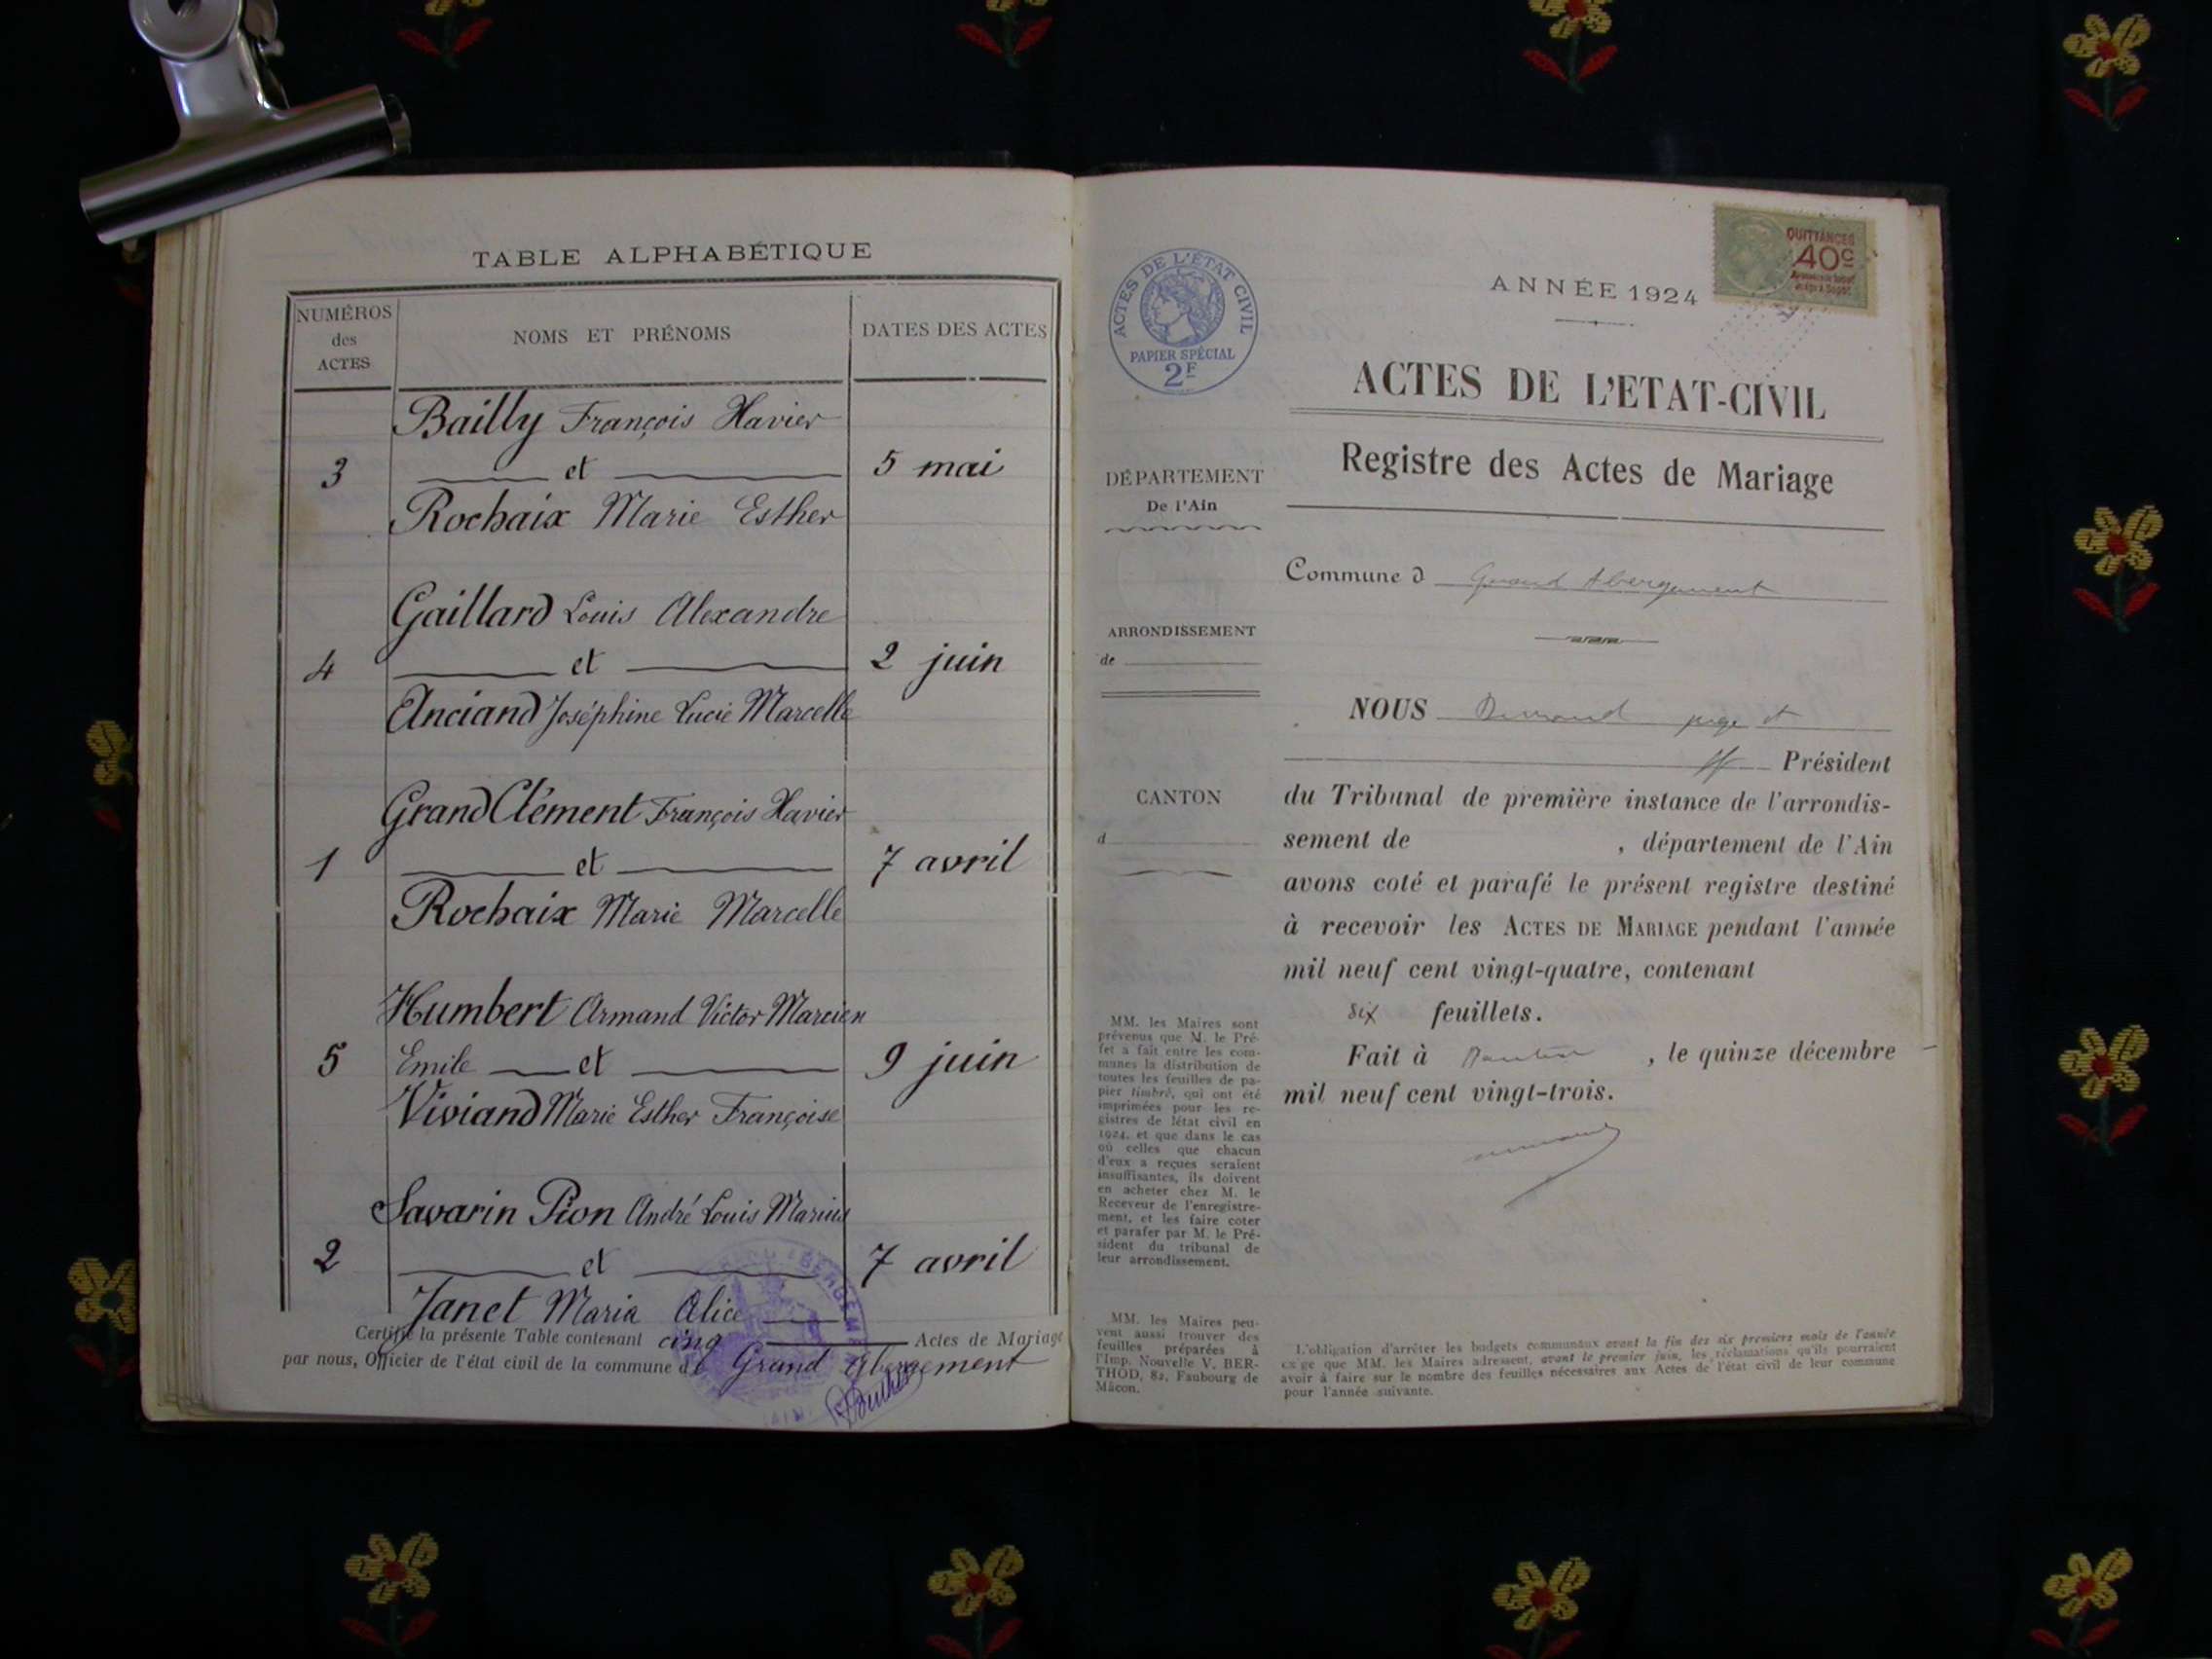 TABLE ALPHABÉTIQUE
NUMÉROS
des
ACTES
NOMS ET PRÉNOMS
DATES DES ACTES
Bailly François Xavier
3 et 5 mai
Rochaix Marie Esther
Gaillard Louis Alexandre
4 et 2 juin
Anciand Joséphine Lucie Marcelle
Grand Clément François Xavier
1 et 7 avril
Rochaix Marie Marcelle
Humbert Armand Victor Marcien
5 Emile et 9 juin
Viviand Marie Esther Françoise
Savarin Pion André Louis Marius
2 et 7 avril
Janet Maria Alice
Certifié la présente Table contenant cinq Actes de Mariage
par nous, Officier de l'état civil de la commune de Grand Abergement
ACTES DE L'ÉTAT CIVIL
PAPIER SPÉCIAL
2F
QUITTANCES
40c
ANNÉE 1924
ACTES DE L'ETAT-CIVIL
Registre des Actes de Mariage
DÉPARTEMENT
De l'Ain
Commune d Grand Abergement
ARRONDISSEMENT
de
NOUS
Président
CANTON
d
du Tribunal de première instance de l'arrondis-
sement de , département de l'Ain
avons coté et parafé le présent registre destiné
à recevoir les ACTES DE MARIAGE pendant l'année
mil neuf cent vingt-quatre, contenant
six feuillets.
Fait à , le quinze décembre
mil neuf cent vingt-trois.
MM. les Maires sont
prévenus que M. le Pré-
fet a fait entre les com-
munes la distribution de
toutes les feuilles de pa-
pier timbré, qui ont été
imprimées pour les re-
gistres de létat civil en
1924, et que dans le cas
où celles que chacun
d'eux a reçues seraient
insuffisantes, ils doivent
en acheter chez M. le
Receveur de l'enregistre-
ment, et les faire coter
et parafer par M. le Pré-
sident du tribunal de
leur arrondissement.
MM. les Maires peu-
vent aussi trouver des
feuilles préparées à
l'Imp. Nouvelle V. BER-
THOD, 82, Faubourg de
Mâcon.
L'obligation d'arrêter les budgets communaux avant la fin des six premiers mois de l'année
exige que MM. les Maires adressent, avant le premier juin, les réclamations qu'ils pourraient
avoir à faire sur le nombre des feuilles nécessaires aux Actes de l'état civil de leur commune
pour l'année suivante.